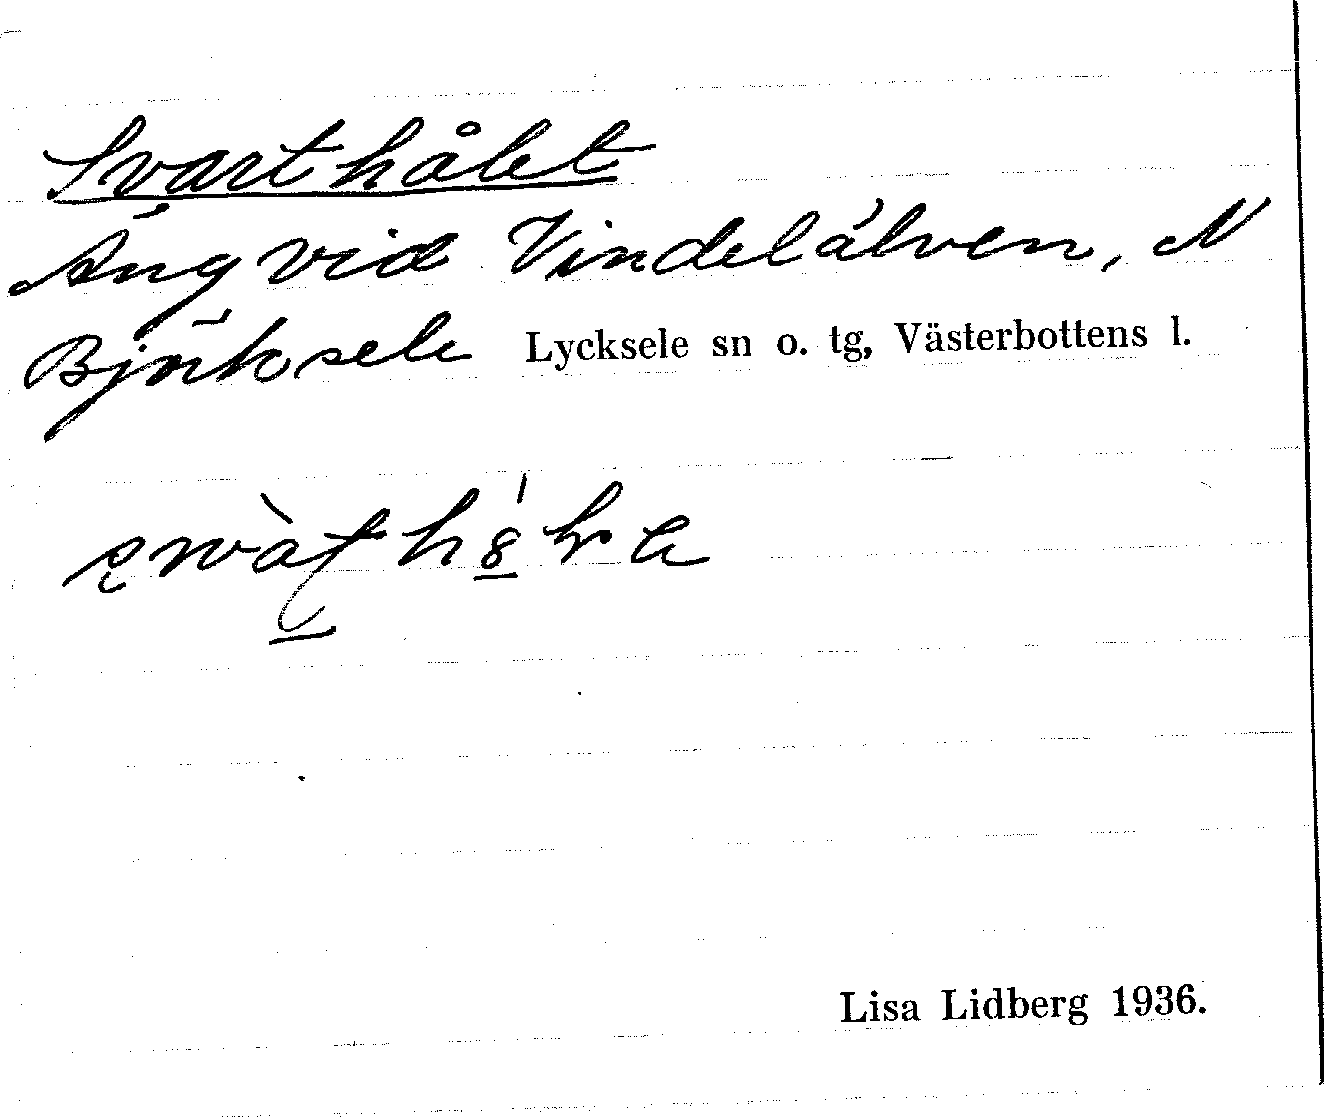 Svarthålet
Äng vid Vindelälven, N
Björksele Lycksele sn o. tg, Västerbottens l.
Lisa Lidberg 1936.